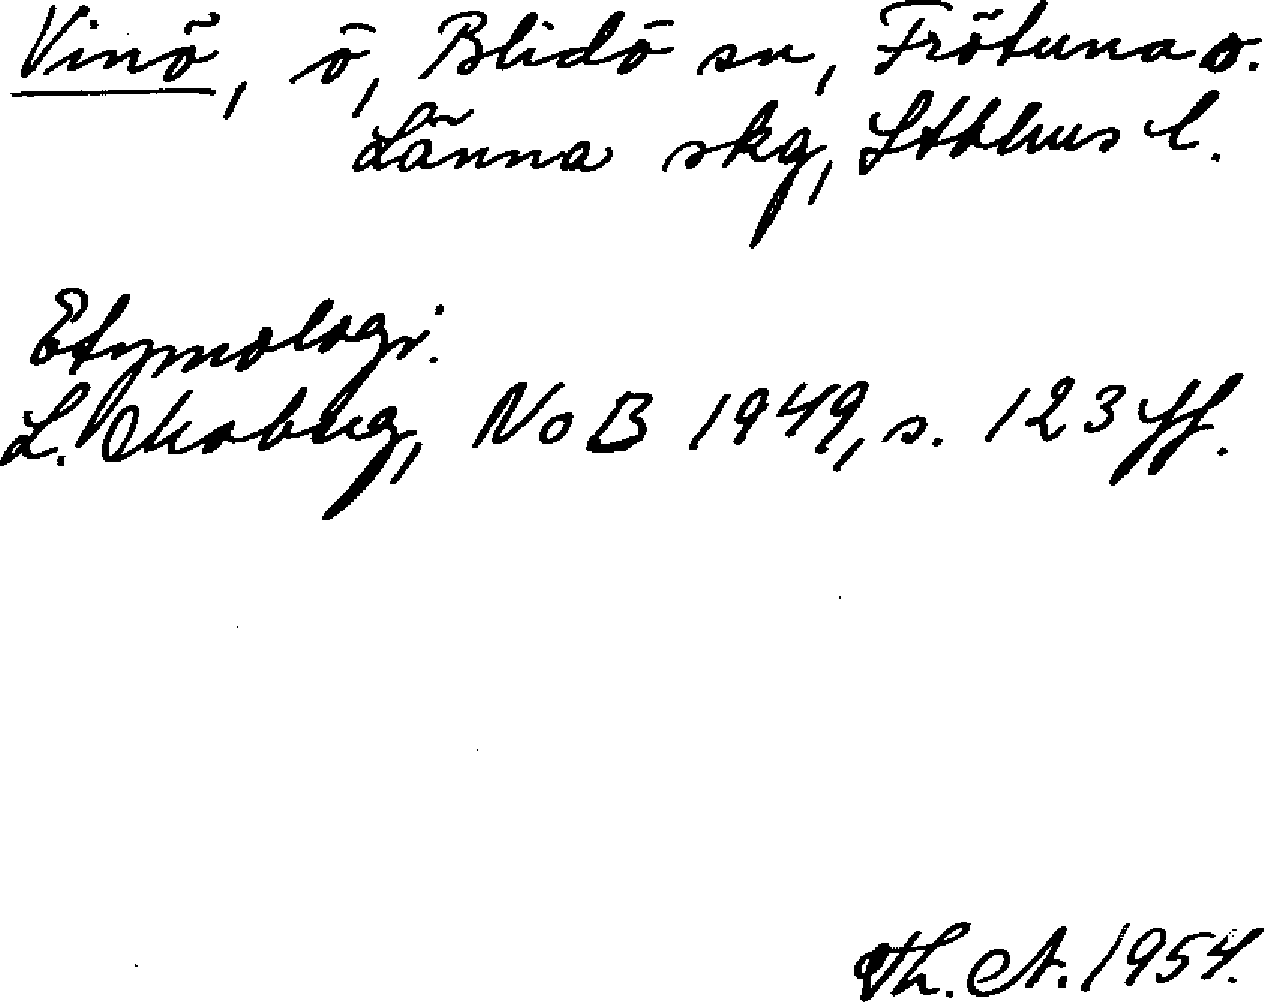 Vinö, ö, Blidö sn, Frötuna o.
Länna skg, Sthlms l.
Etymologi:
L. Moberg, NoB 1949, s. 123 ff.
Th. A. 1954.